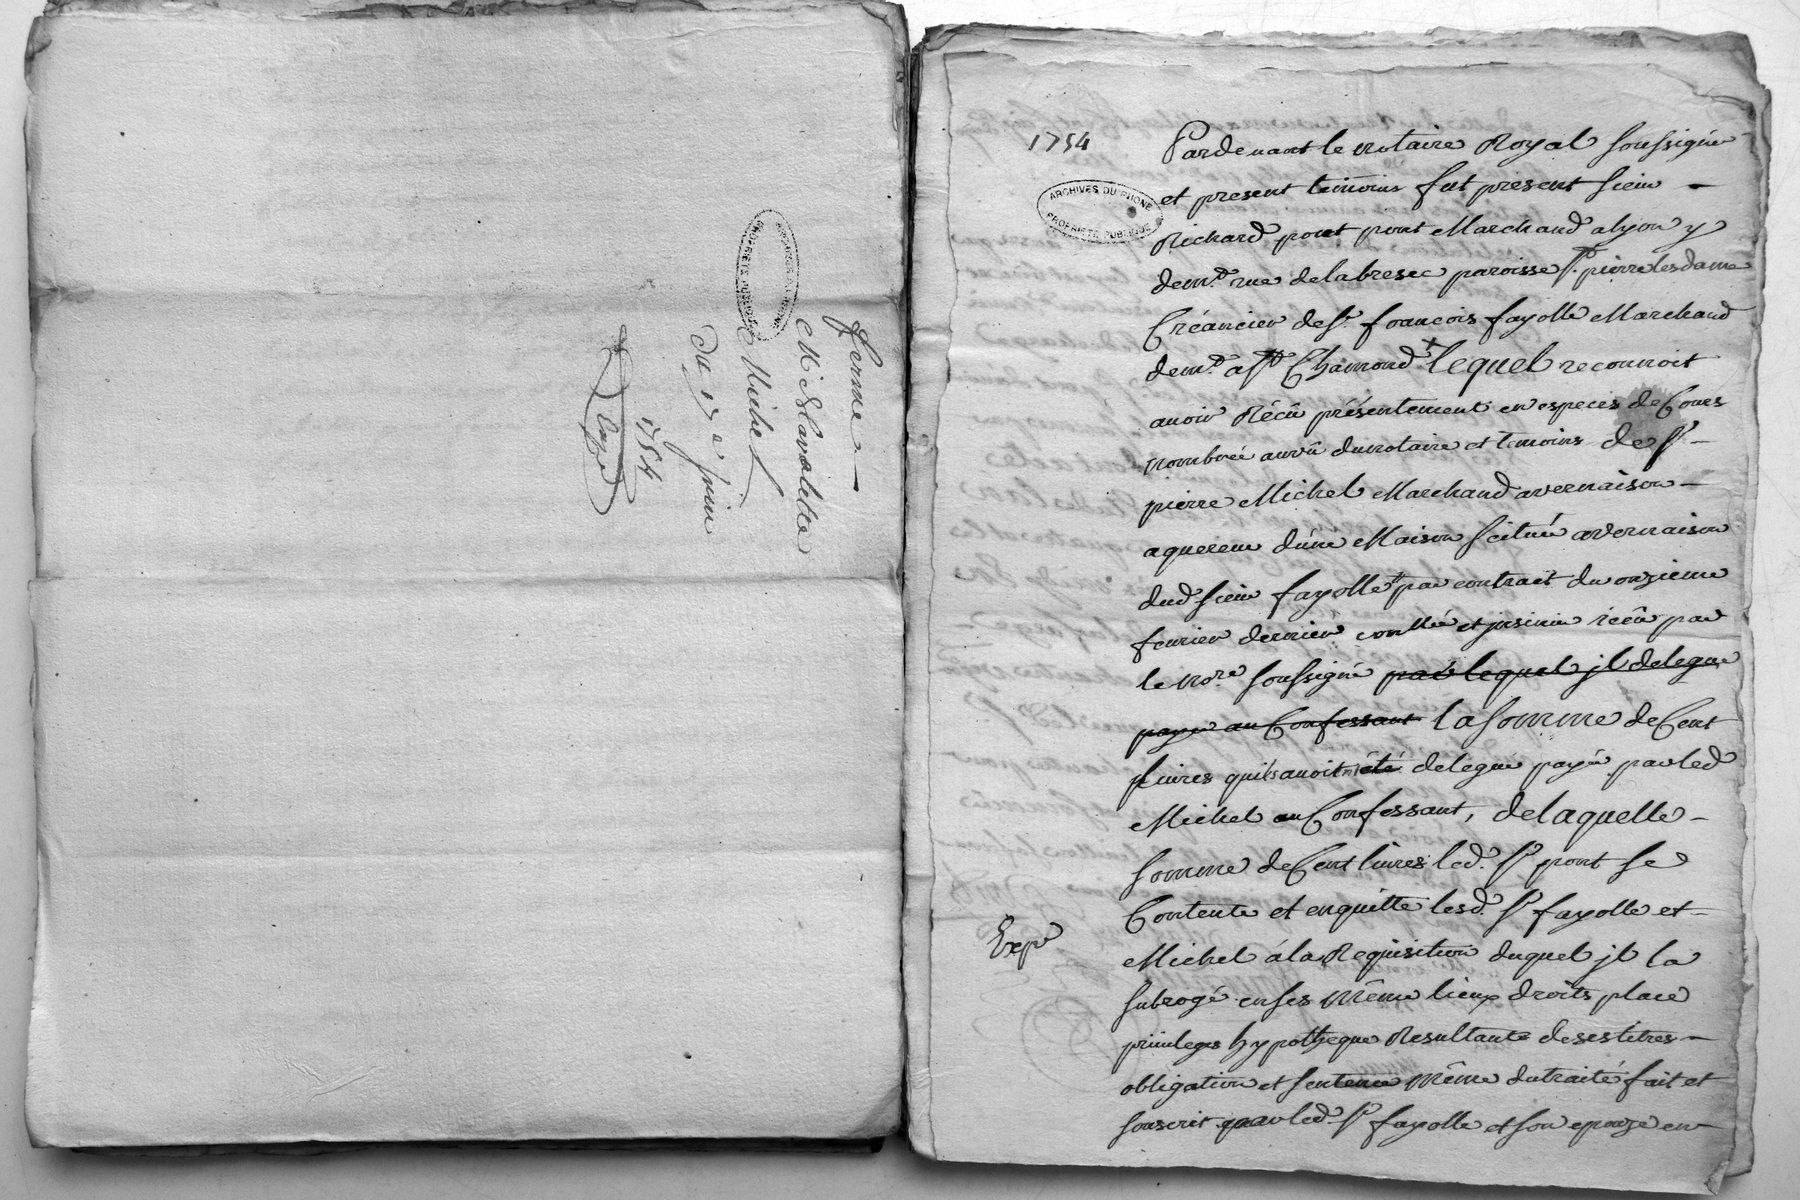 ferme
Mr Lavalette
Michel
du 17e juin
1754
ARCHIVES DU RHONE
PROPRIETE PUBLIQUE
1754
ARCHIVES DU RHONE
PROPRIETE PUBLIQUE
Pardevant le notaire Royal soussigné
et present temoins fut present sieur
Richard pont pont Marchand alyon y
demt. rue delabresec paroisse St. pierre lesdame
Créancier de Sr. francois fayolle Marchand
demt. a St Chamond + lequel reconnoit
avoir Récü présentement en especes de Cours
nombrée auvû dunotaire et temoins de Sr
pierre Michel Marchand avernaison
aquereur d'une Maison Scituée avernaison
dud sieur fayolle par contract du onzieme
fevrier dernier conllé et insinué récû par
le nore soussigné par lequel jl delegue
payer au Confessant la somme de Cent
Livres quils avoit été delégué payér parled
Michel au Confessant, delaquelle
somme de Cent livres led. Sr pont se
Contente et enquitte lesd. Sr fayolle et
Expé
Michel á la Requisition duquel jl la
subrogé en ses même lieux droits place
privileges hypotheque Resultante de ses titres
obligation et sentence même dutraité fait et
souscrit parled. Sr fayolle et son epouze en